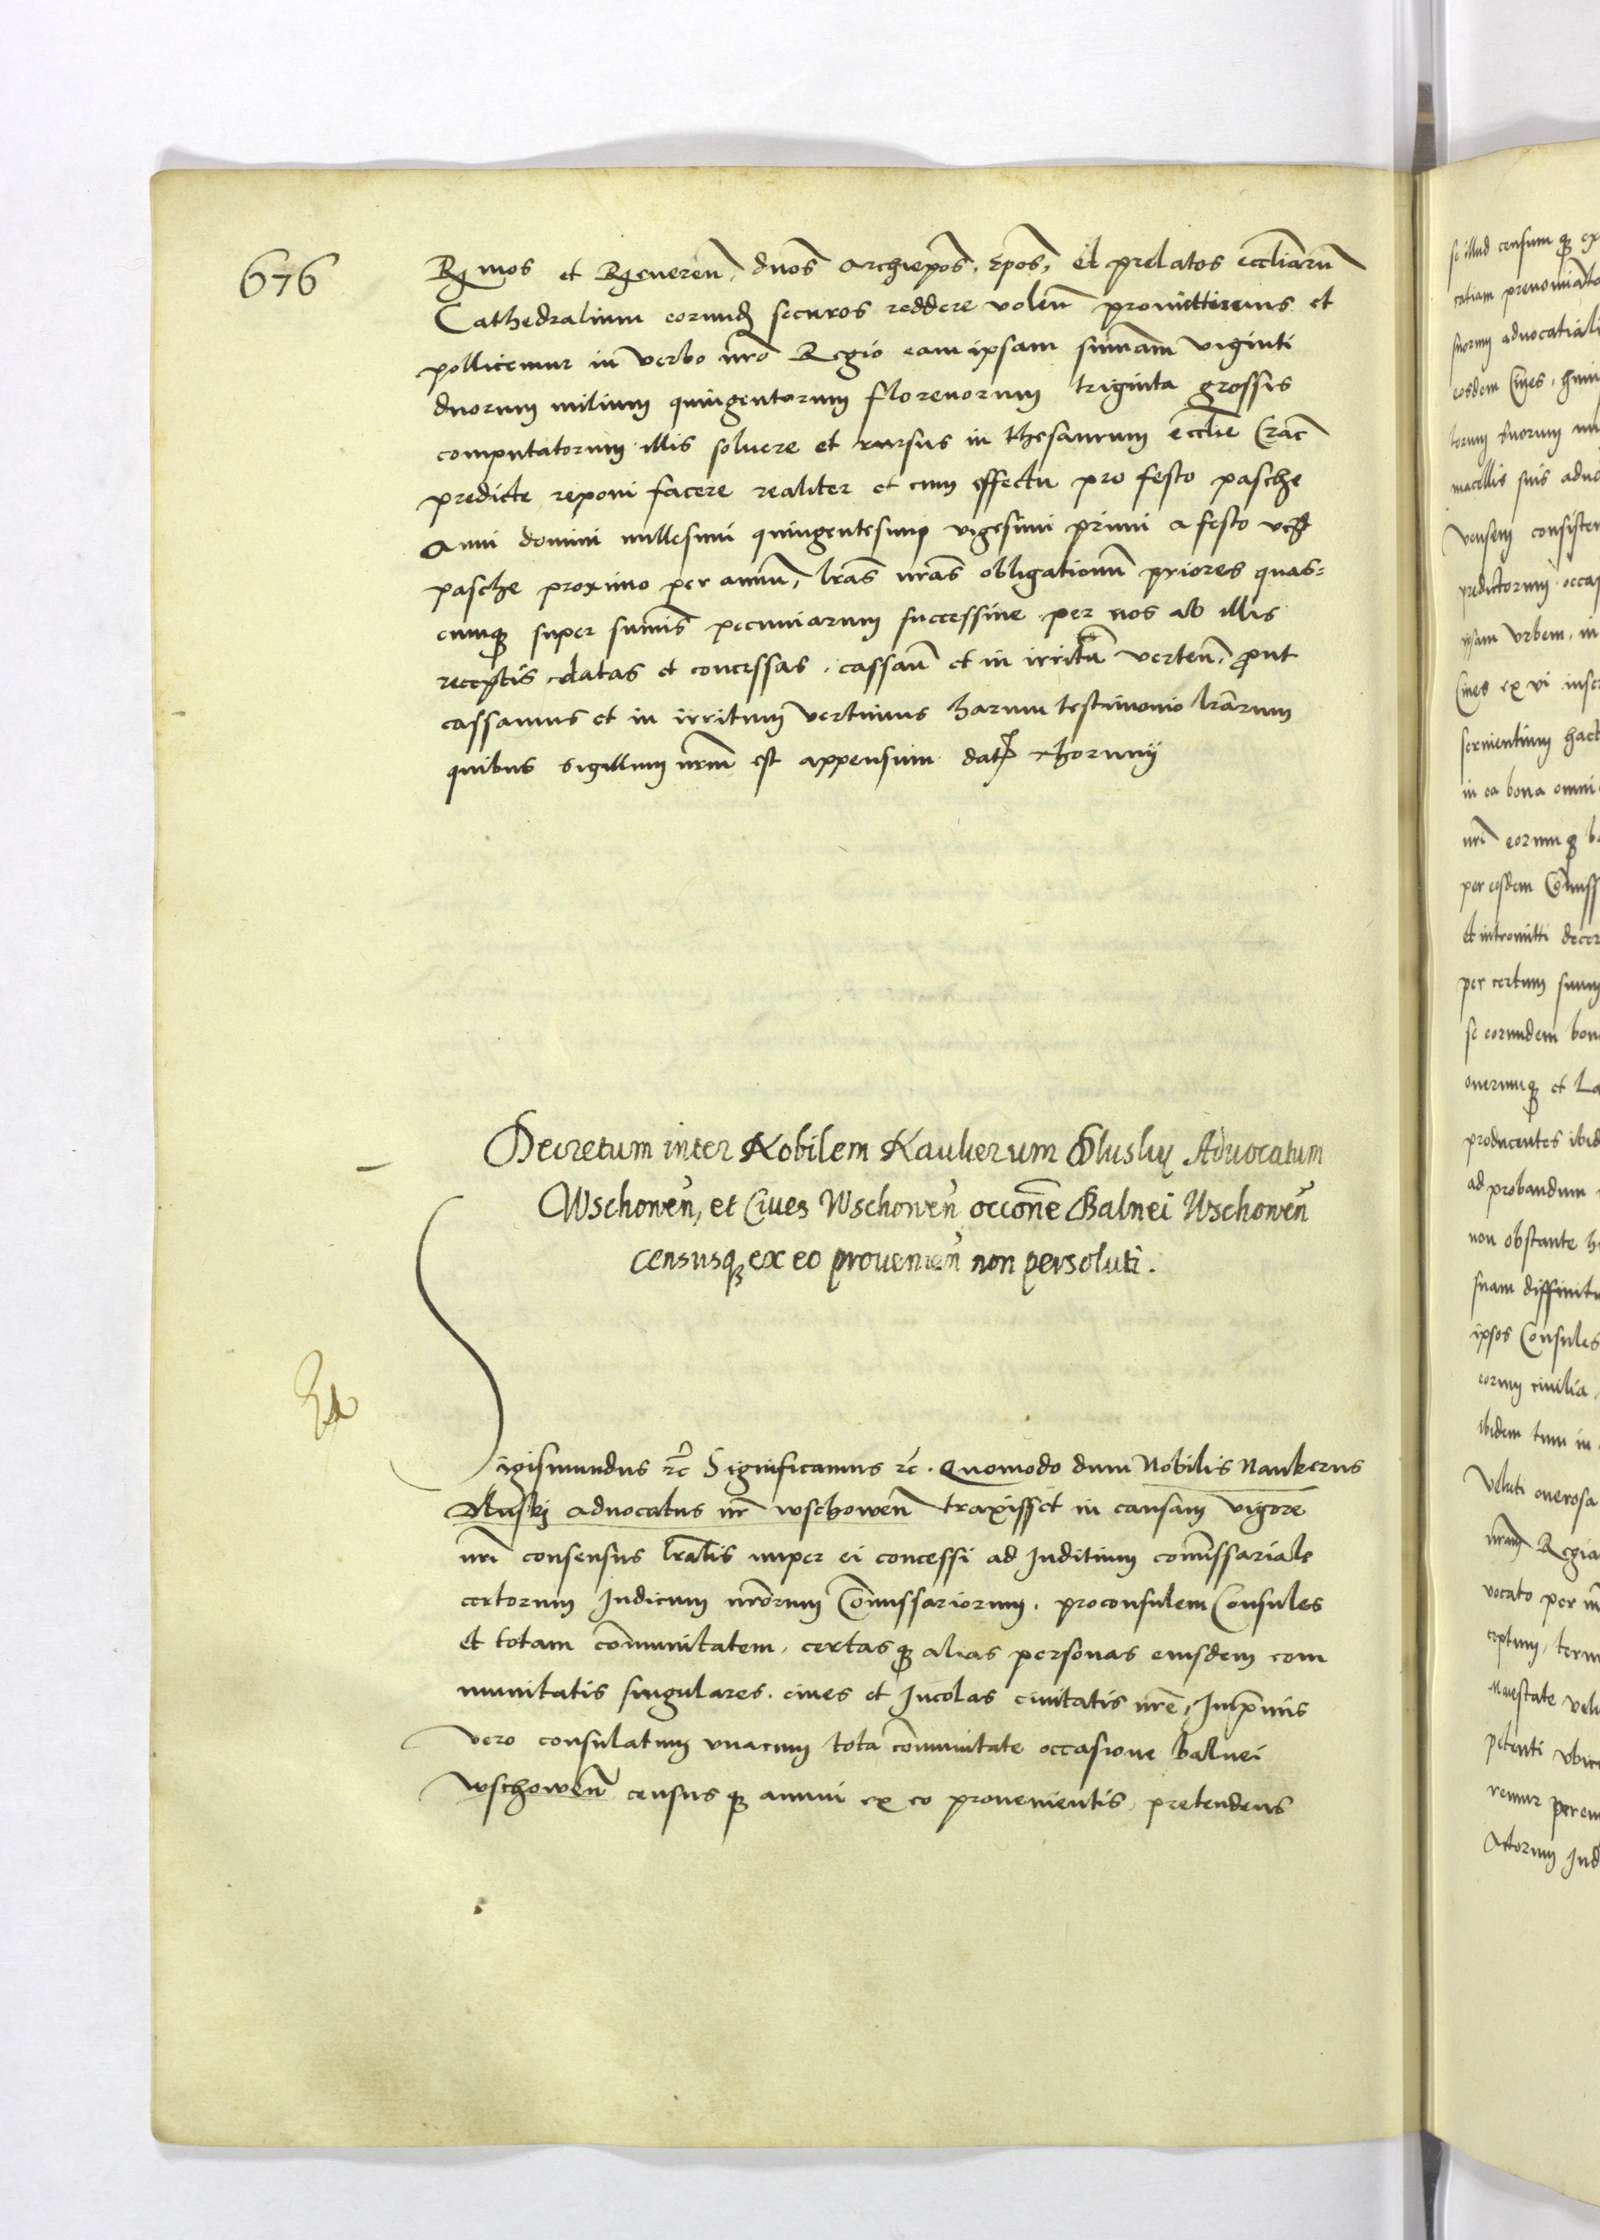 676
Rmos et Reveren, dnos Archiepos, Epos, et prelatos eccliarũ
Cathedralium eorundẽ securos reddere volen promittimus et
pollicemur in verbo nro Regio eam ipsam sumam viginti
duorum milium quingentorum florenorum triginta grossis
computatorum illis soluere et rursus in thesaurum ecclie Crac
predicte reponi facere realiter et cum effectu pro festo pasche
Anni domini millesimi quingentesimi vigesimi primi a festo vz
pasche proximo per annũ, lras nras obligationũ priores quas=
cunq super sumis pecuniarum successiue per nos ab illis
receptis datas et concessas, cassan et in irritũ verten, prout
cassamus et in irritum vertimus harum testimonio lrarum
quibus sigillum nrm est appensum dat Thorunij
Decretum inter Nobilem Naukerum Dlusky Aduocatum
Wschowen, et Ciues Wschowen occone Balnei Wschowen
censusq ex eo prouenien non persoluti.
Sigismundus rc Significamus rc. Quomodo dum Nobilis Naukerus
Dluskj aduocatus nr wschowen traxisset in causam vigore
nri consensus lralis nuper ei concessi ad Juditium comissariale
certorum Judicum nrorum Comissariorum, proconsulem Consules
et totam communitatem, certasq alias personas eiusdem com
munitatis singulares, ciues et Jncolas ciuitatis nre, Jnprimis
vero consulatum vnacum tota comunitate occasione balnei
wschowen censusq annui ex eo prouenientis, pretendens
se illud censum q ex
aduocatiali
eosdem Ciues,
macellis suis aduo
consisten
predictorum occas
ipsam vrbem, in
Ciues ex vi inscr
seruientium hact
in ea bona omni
nri eorumq b
per eosdem Comiss
et intromitti decer
per certum suum
se eorundem bon
onerumq et La
producentes ibid
ad probandum
non obstante h
suam diffinit
ipsos Consules
eorum ciuilia,
ibidem tum in
Veluti onerosa
nram Regia
vocato per n
ceptum, term
Maiestate vel
petenti vbic
remur perem
Actorum Jud